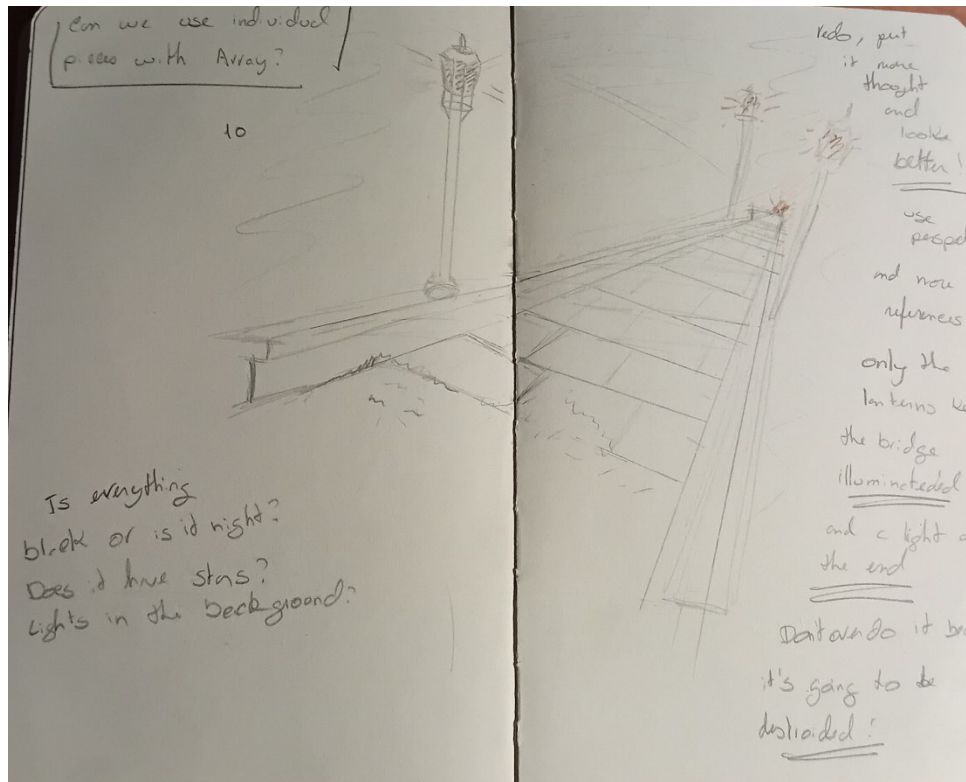 Can we use individual
pieces with Array?
10
Is everything
black or is it night?
Does it have stars?
Lights in the background?
redo, put
it more
thought
and
looks
better!
use
perspe
and more
references
only the
lanterns ke
the bridge
illumineteded
and a light a
the end
Don't overdo it be
it's going to be
distroided!